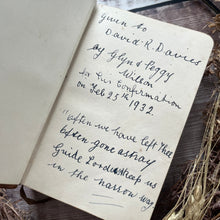 given to
David. R. Davies
by Glyn & Peggy
Wilson
for his Confirmation
on Feb 25th 1932
"often we have left Thee
Often gone astray
Guide Lord & keep us
in the narrow way